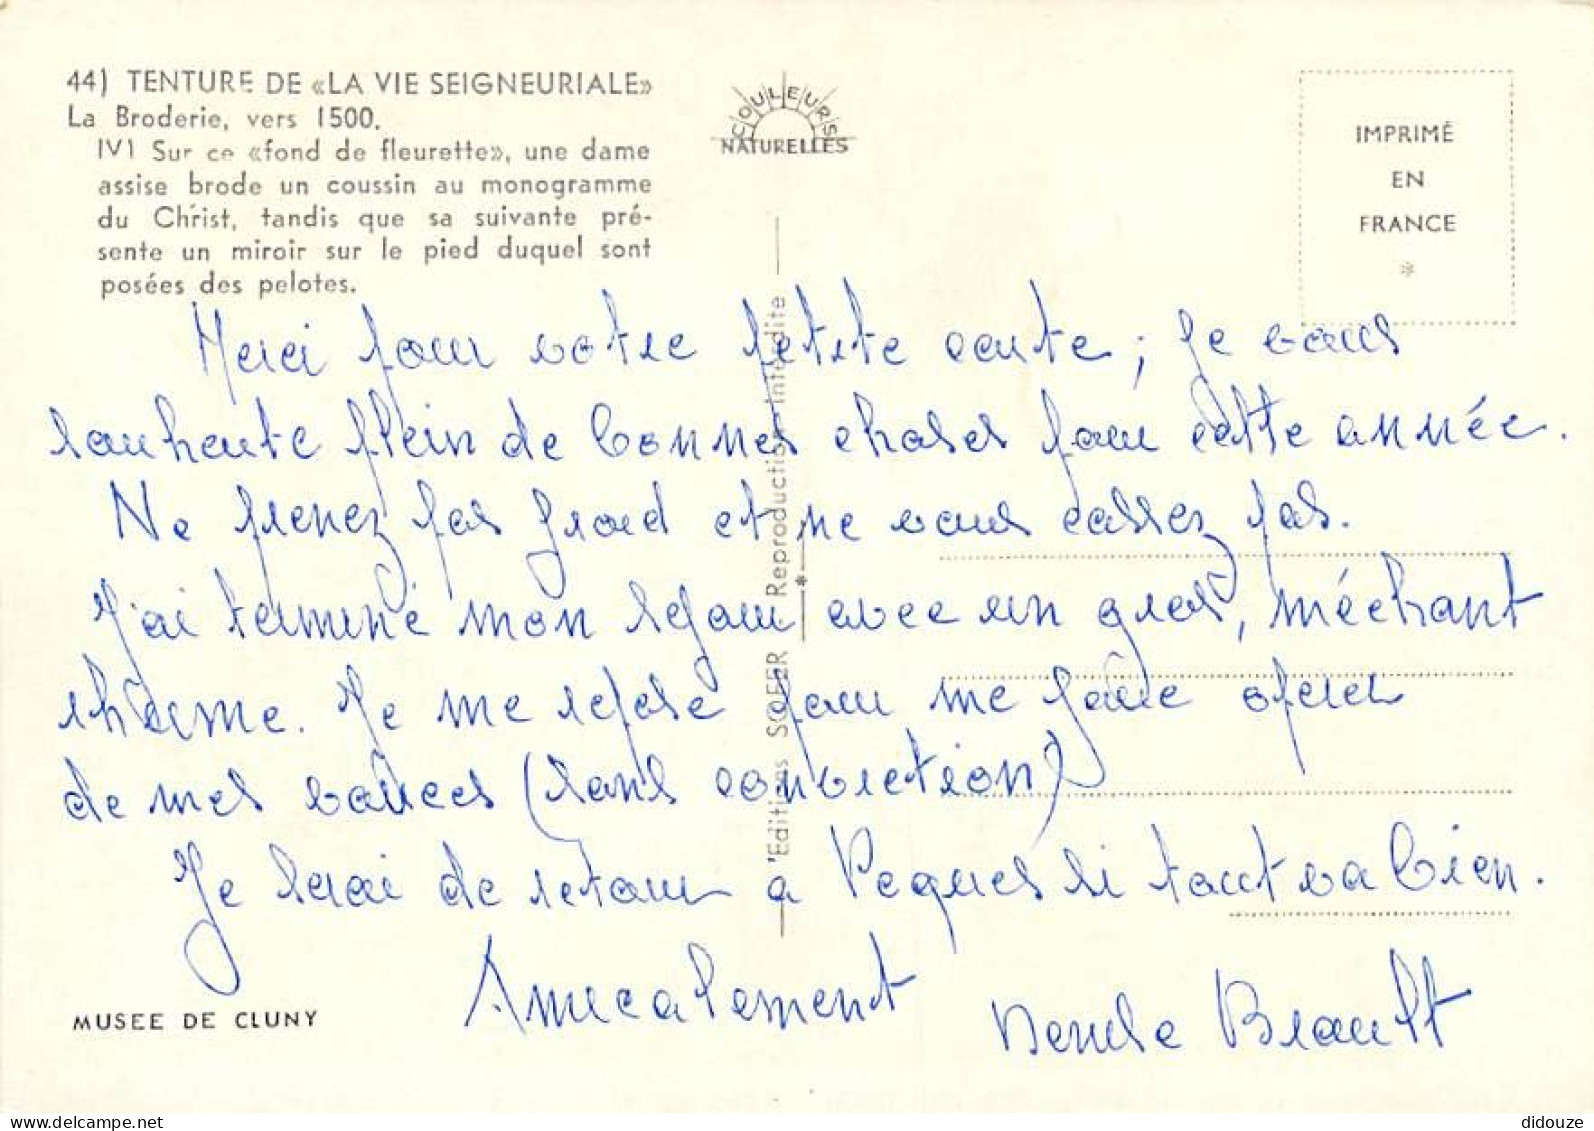 44) TENTURE DE «LA VIE SEIGNEURIALE»
La Broderie, vers 1500.
IV) Sur ce «fond de fleurette», une dame
assise brode un coussin au monogramme
du Christ, tandis que sa suivante pré-
sente un miroir sur le pied duquel sont
posées des pelotes.
COULEURS
NATURELLES
IMPRIMÉ
EN
FRANCE
*
Merci pour votre petite carte ; je vous
souhaite plein de bonnes choses pour cette année.
Ne prenez pas froid et ne vous cassez pas.
J'ai terminé mon séjour avec un gros, méchant
rhume. Je me repose pour me faire opérer
de mes varices (sans conviction)
Je serai de retour à Pâques si tout va bien.
Amicalement
Denise Brault
Editions SOFER * Reproduction Interdite
MUSEE DE CLUNY
delcampe.net
didouze